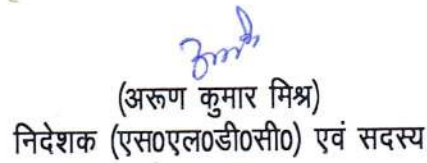 (अरूण कुमार मिश्र)
निदेशक (एस०एल०डी०सी०) एवं सदस्य